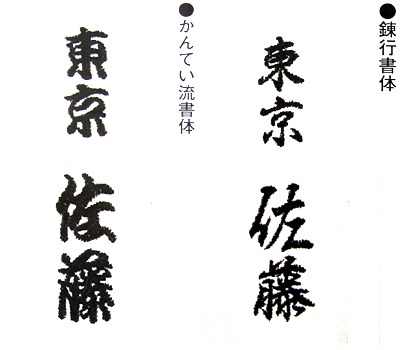 ●錬行書体
東京
佐藤
●かんてい流書体
東京
佐藤